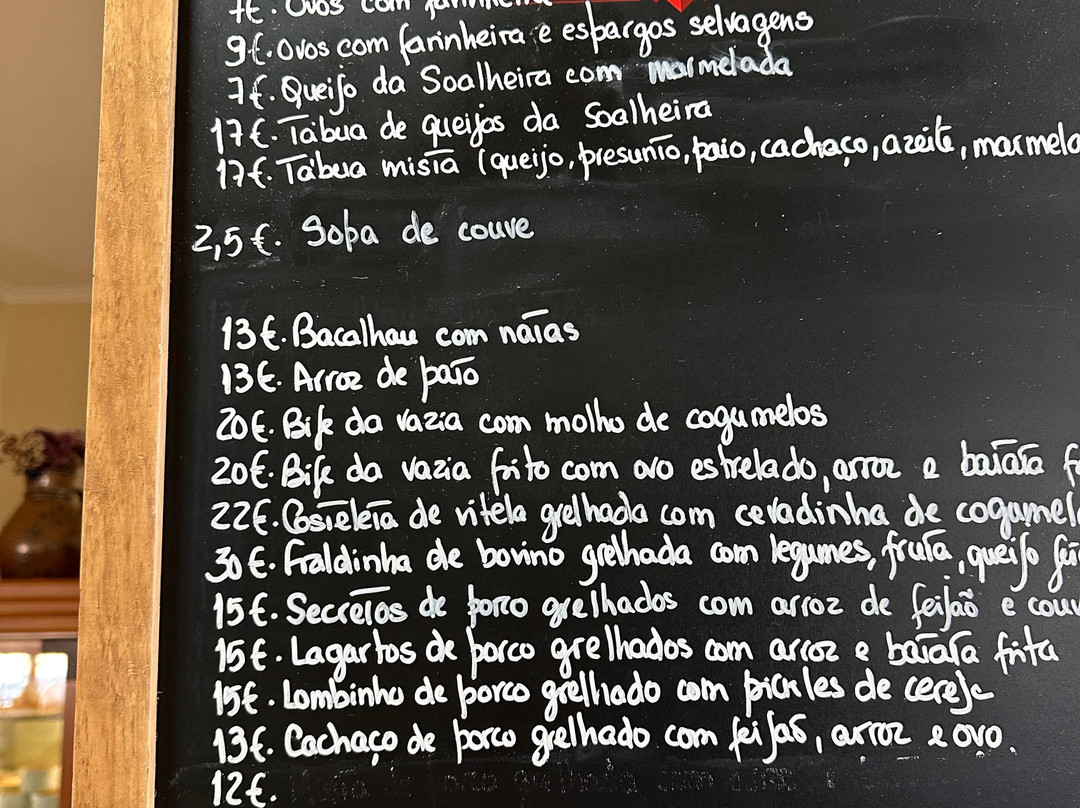 7€. Ovos com farinheira
9€. Ovos com farinheira e espargos selvagens
7€. Queijo da Soalheira com marmelada
17€. Tábua de queijos da Soalheira
17€. Tábua mista (queijo, presunto, paio, cachaço, azeite, marmela
2,5€. Sopa de couve
13€. Bacalhau com natas
13€. Arroz de pato
20€. Bife da vazia com molho de cogumelos
20€. Bife da vazia frito com ovo estrelado, arroz e batata f
22€. Costeleta de vitela grelhada com cevadinha de cogumel
30€. Fraldinha de bovino grelhada com legumes, fruta, queijo
15€. Secretos de porco grelhados com arroz de feijão e couv
15€. Lagartos de porco grelhados com arroz e batata frita
15€. Lombinho de porco grelhado com pickles de cereja
13€. Cachaço de porco grelhado com feijão, arroz e ovo.
12€.